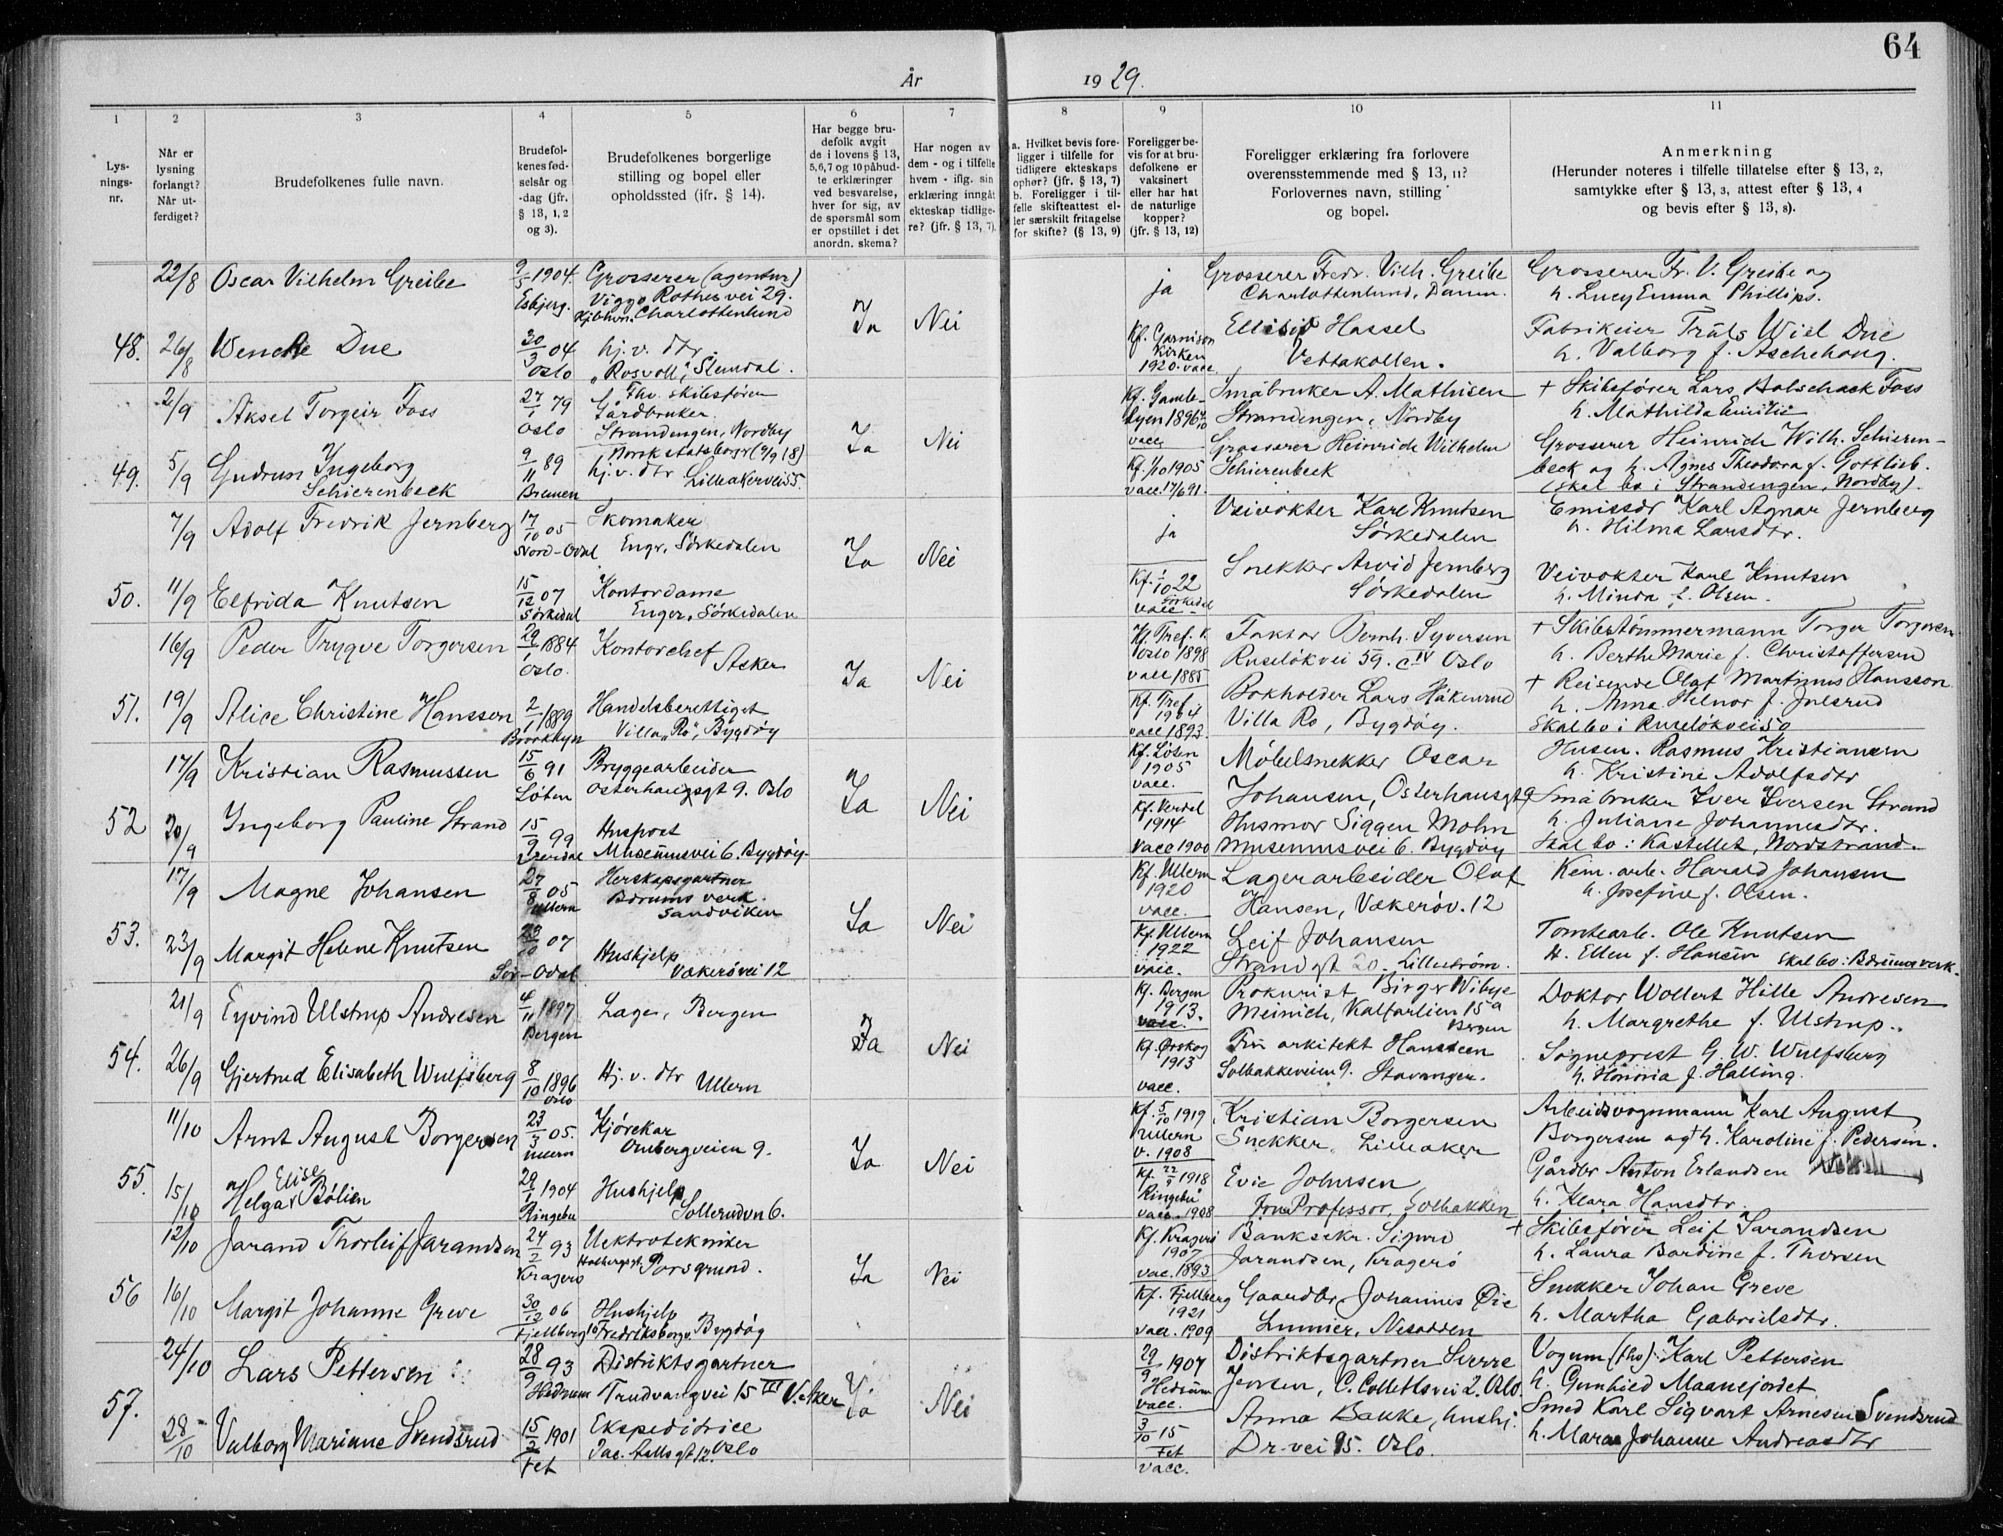 64
År 1929.
1 2 3 4 5 6 7 8 9 10 11
Lysnings-nr.
Når er lysning forlangt? Når utferdiget?
Brudefolkenes fulle navn.
Brudefolkenes fødselsår og -dag (jfr. § 13, 1, 2 og 3).
Brudefolkenes borgerlige stilling og bopel eller opholdssted (jfr. § 14).
Har begge brudefolk avgit de i lovens § 13, 5, 6, 7 og 10 påbudte erklæringer ved besvarelse, hver for sig, av de spørsmål som er opstillet i det anordn. skema?
Har nogen av dem - og i tilfelle hvem - iflg. sin erklæring inngått ekteskap tidligere? (jfr. § 13, 7).
a. Hvilket bevis foreligger i tilfelle for tidligere ekteskaps ophør? (jfr. § 13, 7) b. Foreligger i tilfelle skifteattest eller særskilt fritagelse for skifte? (§ 13, 9)
Foreligger bevis for at brudefolkene er vaksinert eller har hat de naturlige kopper? (jfr. § 13, 12)
Foreligger erklæring fra forlovere overensstemmende med § 13, 11? Forlovernes navn, stilling og bopel.
Anmerkning (Herunder noteres i tilfelle tillatelse efter § 13, 2, samtykke efter § 13, 3, attest efter § 13, 4 og bevis efter § 13, 8).
22/8 Oscar Vilhelm Greibe 9/5 1904. Esbjerg. Grosserer (agentur) Viggo Rothes vei 29. Kjbhvn. Charlottenlund
ja Grosserer Fredr. Vilh. Greibe Charlottenlund, Danm.
Grosserer Fr. V. Greibe og h. Lucy Emma Phillips.
48. 26/8 Wenche Due 30/3 04 Oslo hj.v. dtr. "Rosvoll", Slemdal. Ja Nei
Kf. Garnison Kirken 1920. vacc. Ellisif Hassel Vettakollen.
Fabrikeier Truls Wiel Due h. Valborg f. Aschehoug.
2/9 Aksel Torgeir Foss 27/1 79 Oslo f. Thv. skibsfører Gårdbruker. Strandengen, Nordby Norsk statsborgr (9/9 18)
Kf. Gamlebyen 1896 vacc. Småbruker A. Mathisen Strandengen, Nordby
+ Skibsfører Lars Bolschack Foss h. Mathilde Emilie
49. 5/9 Gudrun Ingeborg Schierenbeck 9/11 89 Bremen hj.v. dtr Lilleakervei 55. Ja Nei
Kf. 1/10 1905 vacc. 17/6 91. Grosserer Heinrich Wilhelm Schierenbeck
Grosserer Heinrich Wilh. Schierenbeck og h. Agnes Theodora f. Gottlieb. (skal bo i Strandengen, Nordby).
7/9 Adolf Fredrik Jernberg 17/10 05 Nord-Odal Skomaker Enger, Sørkedalen
ja Veivokter Karl Knutsen Sørkedalen
Emissær Karl Agnar Jernberg h. Hilma Larsdtr.
50. 11/9 Elfrida Knutsen 15/12 07 Sørkedal Kontordame Enger, Sørkedalen Ja Nei
Kf. 1/10 22 Sørkedal vacc Snekker Arvid Jernberg Sørkedalen
Veivokter Karl Knutsen h. Minda f. Olsen.
16/9 Peder Trygve Torgersen 29/1 1884 Oslo. Kontorchef Asker
Kf. Tref. k. Oslo 1898 vacc 1885 Faktor Bernh. Syversen Ruseløkvei 59. c IV Oslo
+ Skibstømmermann Torger Torgersen h. Berthe Marie f. Christoffersen
51. 19/9 Alice Christine Hansson 2/7 1889 Brooklyn Handelsberettiget Villa "Ro", Bygdøy Ja Nei
Kf. Tref. 1904 vacc 1893. Bokholder Lars Håkenrud Villa Ro, Bygdøy.
+ Reisende Olaf Martinus Hansson h. Anna Helnor f. Julsrud Skal bo i Ruseløkvei 50
17/9 Kristian Rasmussen 15/6 91 Løten Bryggearbeider Osterhausgt 9. Oslo
Kf. Løten 1905 vacc. Møbelsnekker Oscar Johansen, Osterhausgt 9
Husm. Rasmus Kristiansen h. Kristine Adolfsdtr
52 20/9 Ingeborg Pauline Strand 15/9 99 Verdal Huspost Museumsvei 6. Bygdøy. Ja Nei
Kf. Verdal 1914 vacc 1900 Husmor Siggen Mohn Museumsvei 6. Bygdøy
Småbruker Iver Iversen Strand h. Juliane Johannesdtr. Skal bo: Kastellet, Nordstrand.
17/9 Magne Johansen 27/8 05 Ullern Herskapsgartner Bærums verk. Sandviken
Kf. Ullern 1920 vacc. Lagerarbeider Olaf Hansen, Vækerøv. 12
Kem. arb. Harald Johansen h. Josefine f. Olsen.
53. 23/9 Margit Helene Knutsen 10 07 Sør-Odal Hushjelp Vækerøvei 12 Ja Nei
Kf. Ullern 1922 vacc. Leif Johansen Strandgt 20. Lillestrøm.
Tomtearb. Ole Knutsen H. Ellen f. Hansen Skal bo: Bærums verk.
21/9 Eyvind Ulstrup Andresen 4/11 1897 Bergen Læge, Bergen
Kf. Bergen 1913. vacc. Prokurist Birger Wibye Meinich, Kalfarlien 15a Bergen
Doktor Wollert Hille Andresen h. Margrethe f. Ulstrup..
54. 26/9 Gjertrud Elisabeth Wulfsberg 8/10 1896 Oslo Hj. v. dtr Ullern Ja Nei
Kf. Ørskog 1913 vacc. Fru arkitekt Hansteen Solbakkeveien 9. Stavanger.
Sogneprest G. W. Wulfsberg h. Honoria f. Halling.
11/10 Arnt August Borgersen 23/3 05. Ullern Kjørekar Ombergveien 9.
Kf. 5/10 1919 Ullern v. 1908 Kristian Borgersen Snekker, Lilleaker
Arbeidsvognmann Karl August Borgersen og + h. Karoline f. Pedersen.
55. 15/10 Helga Elise Bølien 29/1 1904 Ringebu Hushjelp Sollerudvn 6. Ja Nei
Kf. 22/9 1918 Ringebu vacc. 1908 Evie Johnsen Fru Professor, Solbakken
Gårdbr Anton Erlandsen h. Klara Hansdtr
12/10 Jarand Thorleif Jarandsen 24/2 93 Kragerø Elektrotekniker Holbergsgt. Porsgrund.
Kf. Kragerø 1907 vac. 1893 Banksekr. Sigurd Jarandsen, Kragerø
+ Skibsfører Leif Jarandsen h. Laura Bardine f. Thorsen
56 16/10 Margit Johanne Greve 30/12 06 Fjellberg Hushjelp 16 Fredriksborgv. Bygdøy Ja Nei
Kf. Fjellberg 1921 vacc. 1909 Gaardbr Johannes Øie Linnier, Nesodden
Snekker Johan Greve h. Martha Gabrielsdtr.
24/10 Lars Pettersen 28/9 93 Hedrum Distriktsgartner Trudvangvei 15 III V. Aker
29/9 1907 Hedrum vacc. Distriktsgartner Sverre Iversen, C. Collettsvei 2. Oslo
Vognm (ths): Karl Pettersen h. Gunhild Maanejordet
57. 28/10 Valborg Mariane Svendsrud 15/2 1901 Fet Ekspeditrice Jac. Aallsgt 12. Oslo Ja Nei
3/10 15 Fet vacc. Anna Bakke, hushj. Dr.vei 95. Oslo.
Smed Karl Sigvart Arnesen Svendsrud h. Maren Johanne Andreasdtr